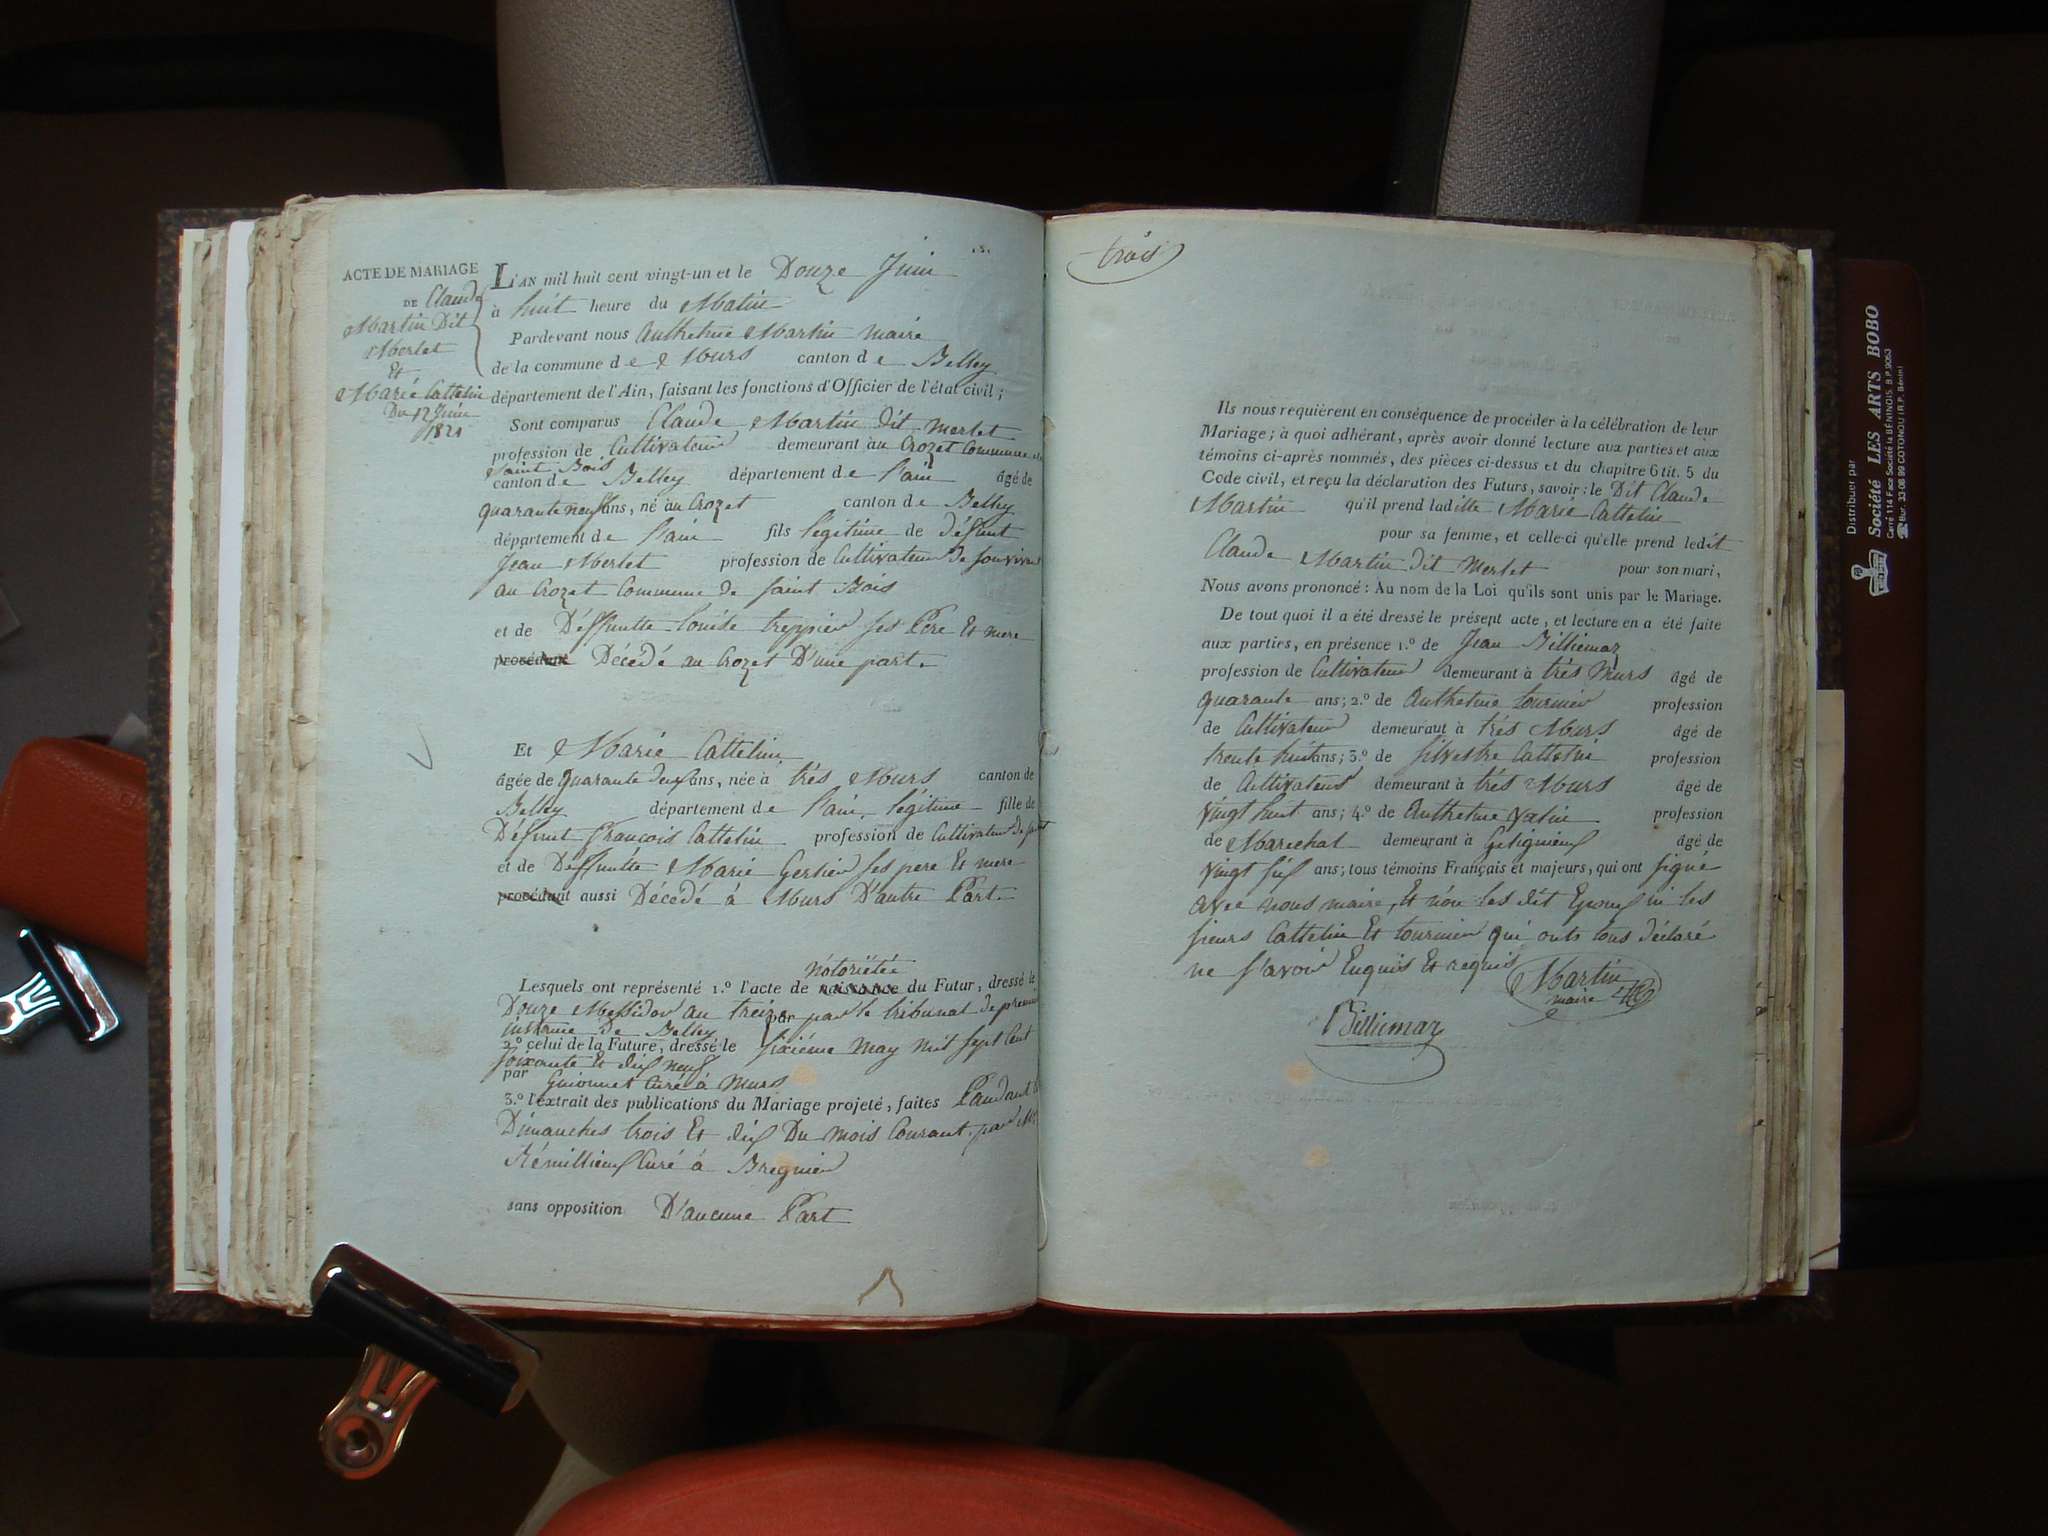 ACTE DE MARIAGE
DE Claude
Martin Dit
Merlet
Et
Marie Cattelin
Du 12 Juin
1821
.3.
L'AN mil huit cent vingt-un et le Douze Juin
à huit heure du Matin
Pardevant nous Anthelme Martin maire
de la commune de Murs canton de Belley
département de l'Ain, faisant les fonctions d'Officier de l'état civil;
Sont comparus Claude Martin dit Merlet
profession de Cultivateur demeurant au Crozet Commune de
Saint Bois
canton de Belley département de l'ain âgé de
quarante neuf ans, né au Crozet canton de Belley
département de l'ain fils légitime de défunt
Jean Merlet profession de Cultivateur De son vivant
au Crozet Commune de Saint Bois
et de Déffuntte Louise treppier ses Pere Et mere
procédant Décédé au Crozet D'une part.
Et Marie Cattelin
âgée de quarante deux ans, née à trés Murs canton de
Belley département de l'ain, légitime fille de
Défunt François Cattelin profession de Cultivateur
et de Déffuntte Marie Gerlier ses pere Et mere
procédant aussi Décédé à Murs D'autre Part.
nótoriétée
Lesquels ont représenté 1.º l'acte de naissance du Futur, dressé le
Douze Messidor an treize par par le tribunal de premier
instance De Belley
2.º celui de la Future, dressé le sixiéme may mil sept cent
soixante Et dix neuf
par Guionnet Curé à Murs
3.º l'extrait des publications du Mariage projeté, faites Pandant
Dimanches trois Et dix Du mois Courant par Mr
Rémillieux Curé à Bregnier
sans opposition D'aucune Part
trois
Ils nous requièrent en conséquence de procéder à la célébration de leur
Mariage; à quoi adhérant, après avoir donné lecture aux parties et aux
témoins ci-après nommés, des pièces ci-dessus et du chapitre 6 tit. 5 du
Code civil, et reçu la déclaration des Futurs, savoir: le Dit Claude
Martin qu'il prend laditte Marie Cattelin
pour sa femme, et celle-ci qu'elle prend ledit
Claude Martin dit Merlet pour son mari,
Nous avons prononcé: Au nom de la Loi qu'ils sont unis par le Mariage.
De tout quoi il a été dressé le présent acte, et lecture en a été faite
aux parties, en présence 1.º de Jean Billiemaz
profession de Cultivateur demeurant à trés Murs âgé de
quarante ans; 2.º de Anthelme tournier profession
de Cultivateur demeurant à trés Murs âgé de
trente huit ans; 3.º de Silvestre Cattelin profession
de Cultivateur demeurant à trés Murs âgé de
vingt huit ans; 4.º de Anthelme vatin profession
de Marechal demeurant à Gelignieux âgé de
vingt six ans; tous témoins Français et majeurs, qui ont signé
avec nous maire, Et nón les dit Epoux ni les
sieurs Cattelin Et tournier qui onts tous déclaré
ne s'avoir Enquis Et requis
Martin
maire
Billiemaz
Distribuer par
Société LES ARTS BOBO
Carré 1114 Face Société la BÉNINOIS B.P. 9053
Bur. 33-08 99 COTONOU (R.P. Bénin)